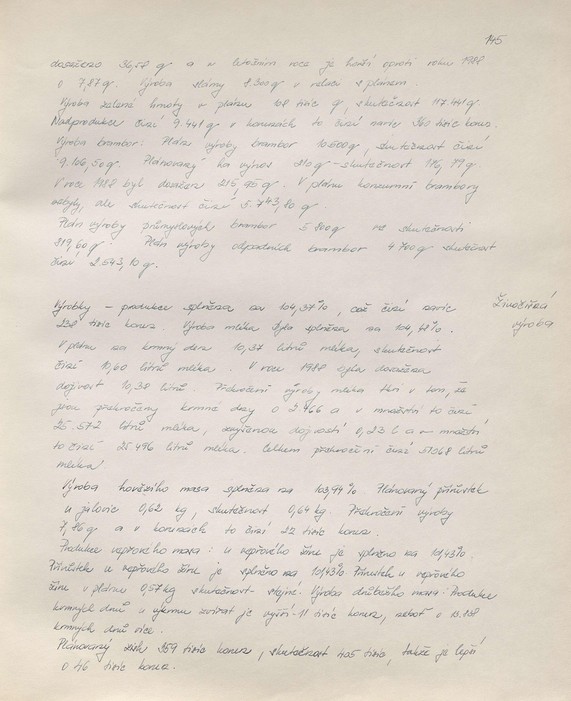 145
dosaženo 36,58 q a v letošním roce je horší oproti roku 1988
o 7,87 q. Výroba slámy 8.300 q v relaci s plánem.
Výroba zelené hmoty v plánu 108 tisíc q, skutečnost 117.441 q.
Nadprodukce činí 9.441 q v korunách to činí navíc 360 tisíc korun.
Výroba brambor: Plán výroby brambor 10.500 q, skutečnost činí
9.106,50 q. Plánovaný ha výnos 210 q - skutečnost
V roce 1988 byl dosažen 215,95 q. V plánu konzumní brambory
nebyly, ale skutečnost činí 5.743,80 q.
Plán výroby průmyslových brambor 5 800 q ve skutečnosti
819,60 q. Plán výroby odpadních brambor 4 700 q skutečnost
činí 2.543,10 q.
Živočišná
výroba
Výrobky - produkce splněna na 104,37%, což činí navíc
238 tisíc korun. Výroba mléka byla splněna na 104,48%.
V plánu na krmný den 10,37 litrů mléka, skutečnost
činí 10,60 litrů mléka. V roce 1988 byla dosažena
dojivost 10,38 litrů. Překročení výroby mléka tkví v tom, že
jsou překročeny krmné dny o 2 466 a v množství to činí
25.572 litrů mléka, zvýšenou dojivostí 0,23 l a v množství
to činí 25 496 litrů mléka. Celkem překročení činí 51068 litrů
mléka!
Výroba hovězího masa splněna na 103,94%. Plánovaný přírůstek
u jalovic 0,62 kg, skutečnost 0,64 kg. Překročení výroby
7,96 q a v korunách to činí 22 tisíc korun.
Produkce vepřového masa: u vepřového žíru je splněno na 10,43%.
Přírůstek u vepřového žíru je splněno na 10,43% Přírůstek u vepřového
žíru v plánu 0,57 kg skutečnost - stejné. Výroba drůbežího masa: Produkce
krmných dnů u výkrmu zvířat je vyšší - 11 tisíc korun, neboť o 13.138
krmných dnů více.
Plánovaný zisk 359 tisíc korun, skutečnost 405 tisíc, takže je lepší
o 46 tisíc korun.